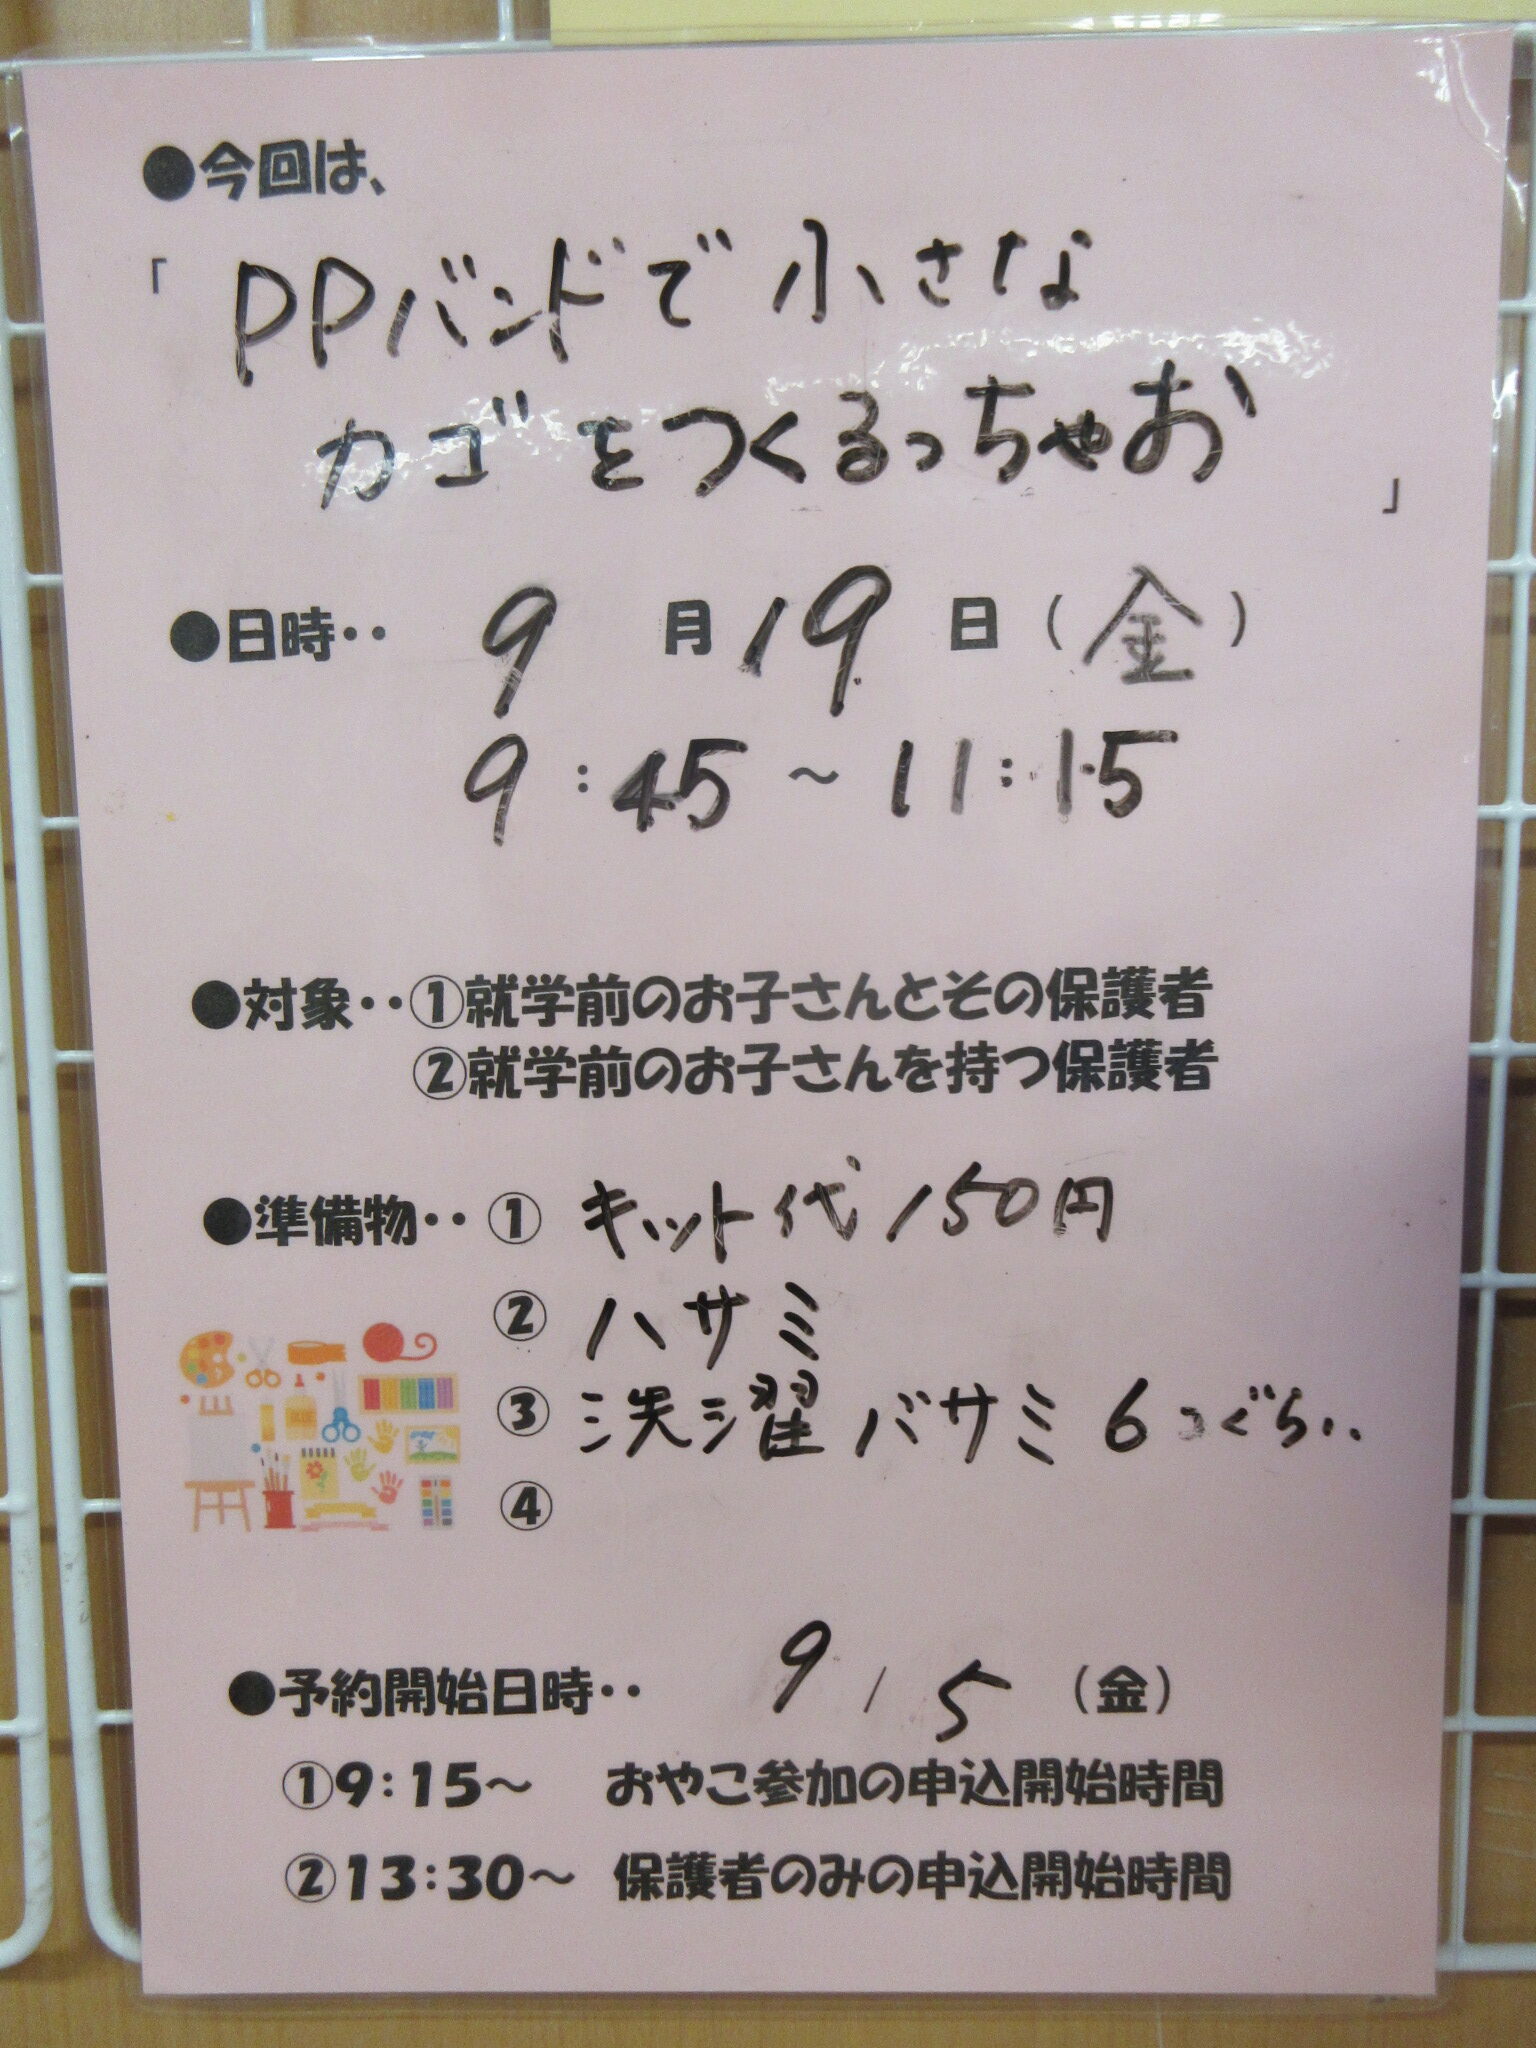 ●今回は、
「PPバンドで小さな
カゴをつくるっちゃお」
●日時‥ 9月19日（金）
9：45～11：15
●対象‥①就学前のお子さんとその保護者
②就学前のお子さんを持つ保護者
●準備物‥①キット代150円
②ハサミ
③洗濯バサミ6つぐらい
④
●予約開始日時‥ 9/5（金）
①9：15～ おやこ参加の申込開始時間
②13：30～ 保護者のみの申込開始時間